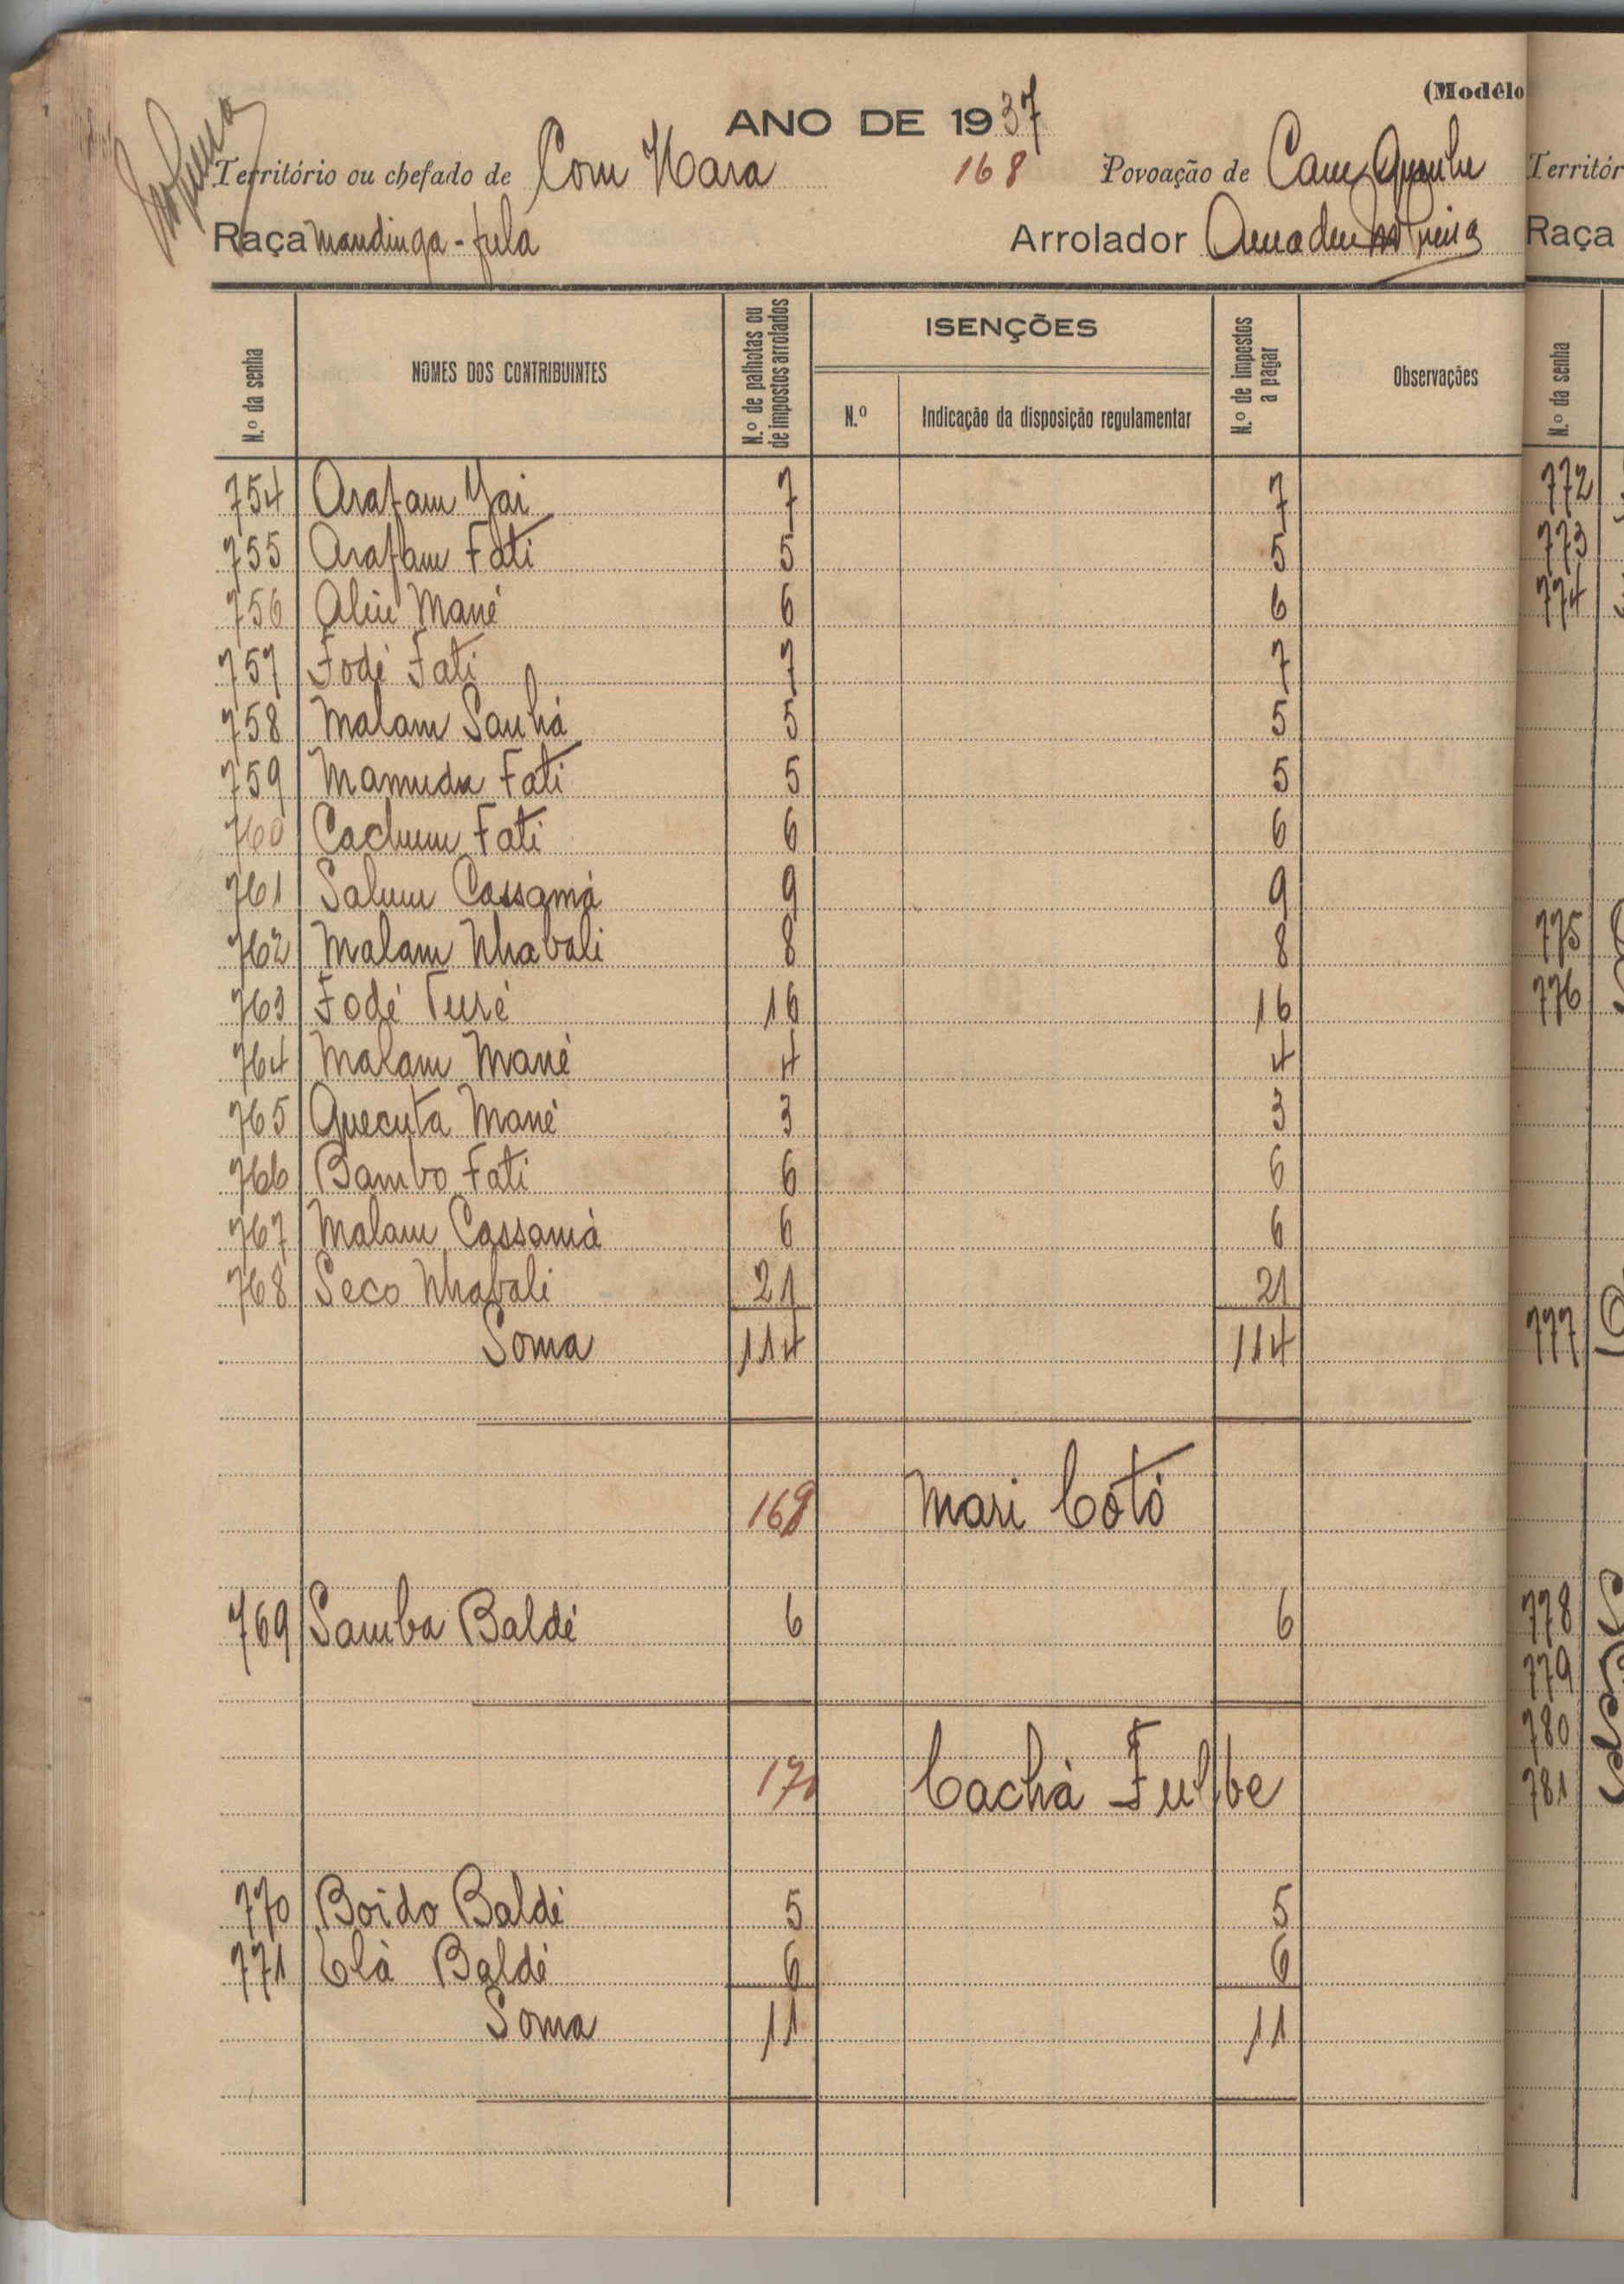 (Modêlo
ANO DE 1937
Território ou chefado de Com Hara 168 Povoação de Cam
Raça mandinga - fula Arrolador Amadu
N.º da senha NOMES DOS CONTRIBUINTES N.º de palhotas ou de impostos arrolados ISENÇÕES N.º de impostos a pagar Observações
N.º Indicação da disposição regulamentar
754 Arafam Jai 7 7
755 Arafam Fati 5 5
756 Aliu Mané 6 6
757 Fodé Fati 7 7
758 Malam Sanhá 5 5
759 Mamudu Fati 5 5
760 Cachum Fati 6 6
761 Salum Cassamá 9 9
762 Malam Nhabali 8 8
763 Fodé Turé 16 16
764 Malam Mané 4 4
765 Quecuta Mané 3 3
766 Bambo Fati 6 6
767 Malam Cassamá 6 6
768 Seco Nhabali 21 21
Soma 114 114
169 Mari Cotó
769 Samba Baldé 6 6
170 Cachá Fulbe
770 Boido Baldé 5 5
771 Elá Baldé 6 6
Soma 11 11
Territór
Raça
N.º da senha
772
773
774
775
776
777
778
779
780
781